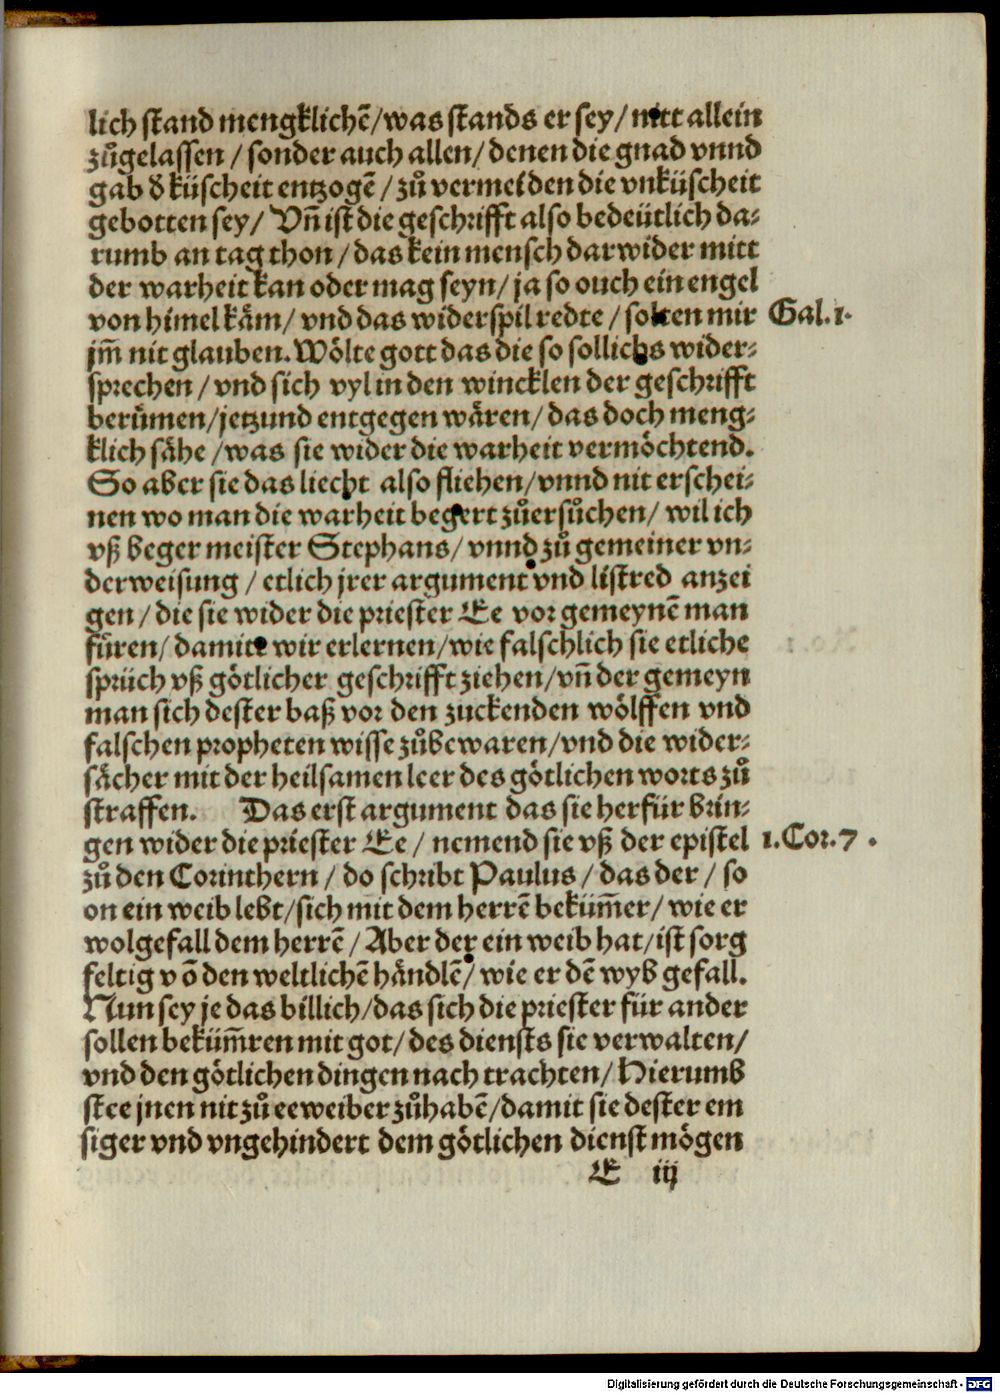 lich stand mengklichē/was stands er sey/nitt allein
zůgelassen / sonder auch allen/denen die gnad vnnd
gab d̕ küscheit entzogē / zů vermeiden die vnküscheit
gebotten sey/ Vn̄ ist die geschrifft also bedeütlich da⸗
rumb an tag thon /das kein mensch darwider mitt
der warheit kan oder mag seyn/ ja so ouch ein engel
von himel kåm/ vnd das widerspil redte / solten mir Gal. 1.
jm̄ nit glauben. Wölte gott das die so sollichs wider⸗
sprechen / vnd sich vyl in den wincklen der geschrifft
berůmen/jetzund entgegen wåren/ das doch meng⸗
klich såhe /was sie wider die warheit vermöchtend.
So aber sie das liecht also fliehen/vnnd nit erschei⸗
nen wo man die warheit begert zůersůchen/ wil ich
vß beger meister Stephans/ vnnd zů gemeiner vn⸗
derweisung / etlich jrer argument vnd listred anzei
gen / die sie wider die priester Ee vor gemeynē man
fůren/ damitt wir erlernen/wie falschlich sie etliche
sprüch vß götlicher geschrifft ziehen/vn̄ der gemeyn
man sich dester baß vor den zuckenden wölffen vnd
falschen propheten wisse zůbewaren/vnd die wider⸗
såcher mit der heilsamen leer des götlichen worts zů
straffen. Das erst argument das sie herfür brin⸗
gen wider die priester Ee / nemend sie vß der epistel 1. Cor. 7.
zů den Corinthern / do schribt Paulus / das der / so
on ein weib lebt/sich mit dem herrē bekům̄er/ wie er
wolgefall dem herrē / Aber der ein weib hat/ist sorg
feltig vō den weltlichē håndlē/ wie er dē wyb gefall.
Nun sey je das billich/das sich die priester für ander
sollen beküm̄ren mit got/ des diensts sie verwalten/
vnd den götlichen dingen nach trachten/ Hierumb
stee jnen nit zů eeweiber zůhabē/damit sie dester em
siger vnd vngehindert dem götlichen dienst mögen
E iij
Digitalisierung gefördert durch die Deutsche Forschungsgemeinschaft - DFG